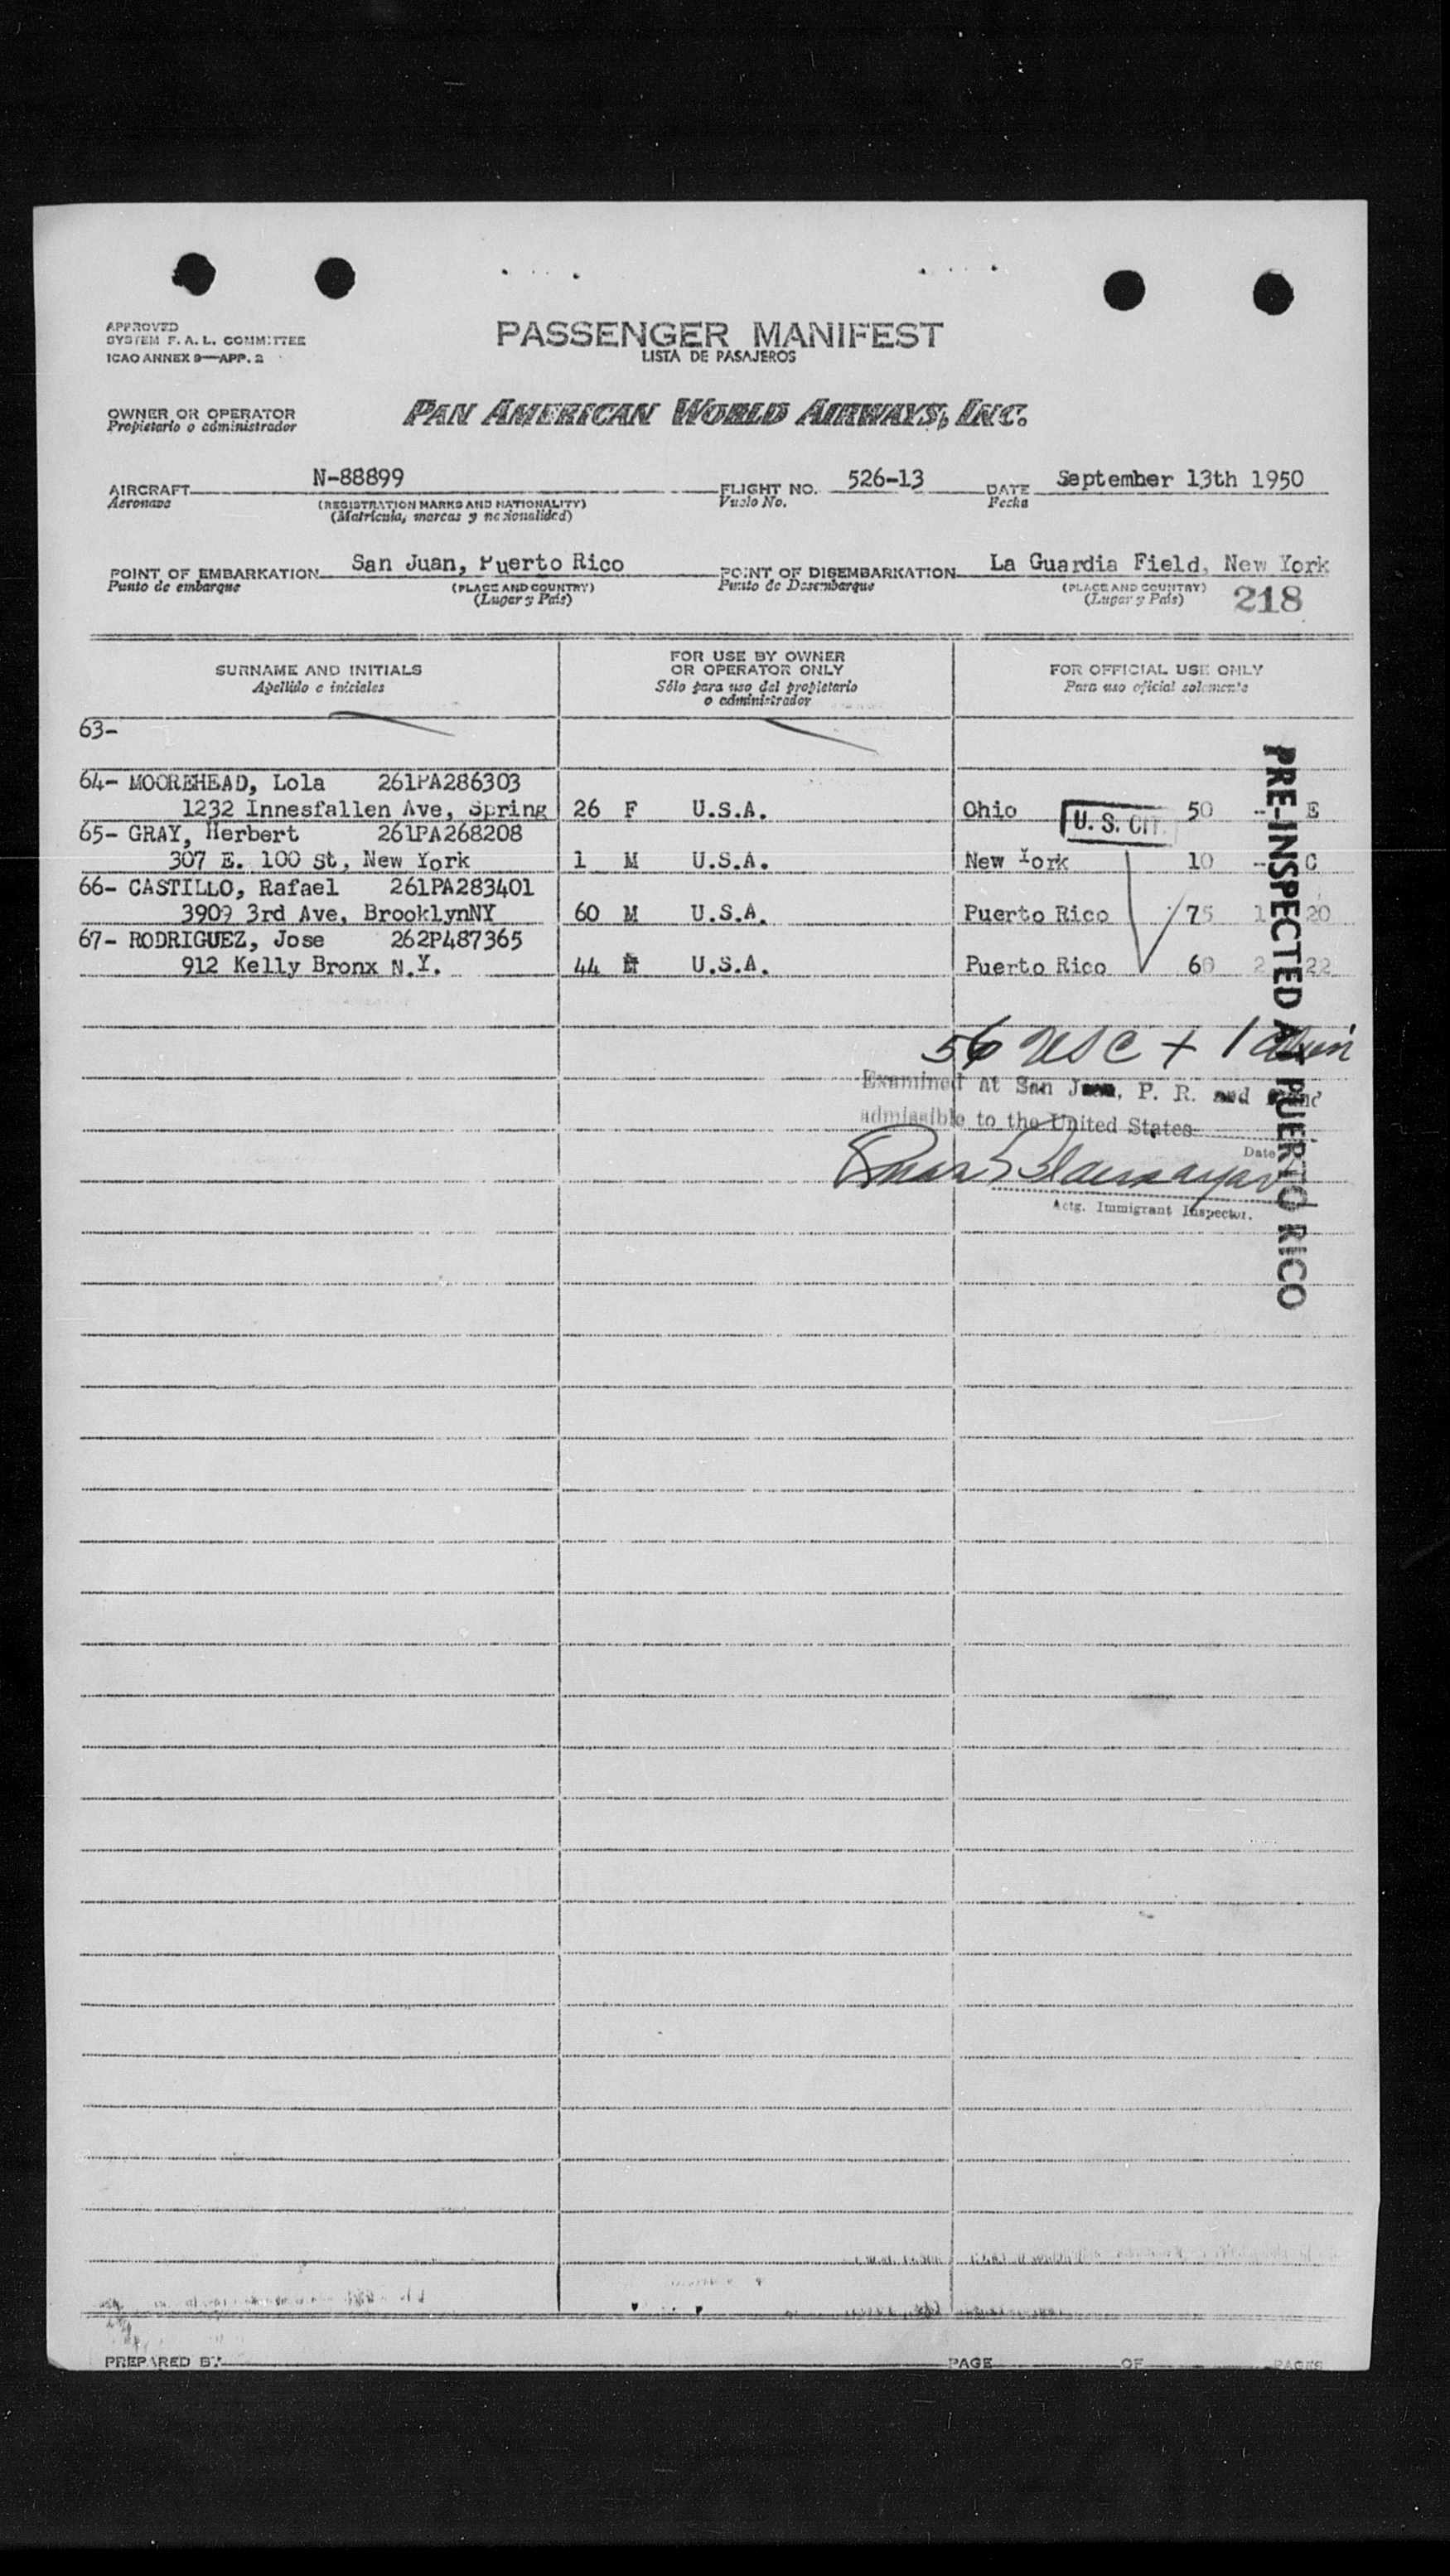 APPROVED
SYSTEM F. A. L. COMMITTEE
ICAO ANNEX 9—APP. 2
PASSENGER MANIFEST
LISTA DE PASAJEROS
OWNER OR OPERATOR
Propietario o administrador
PAN AMERICAN WORLD AIRWAYS, INC.
AIRCRAFT N-88899 FLIGHT NO. 526-13 DATE September 13th 1950
Aeronave (REGISTRATION MARKS AND NATIONALITY) Vuelo No. Fecha
(Matricula, marcas y nacionalidad)
POINT OF EMBARKATION San Juan, Puerto Rico POINT OF DISEMBARKATION La Guardia Field, New York
Punto de embarque (PLACE AND COUNTRY) Punto de Desembarque (PLACE AND COUNTRY)
(Lugar y País) (Lugar y País) 218
SURNAME AND INITIALS FOR USE BY OWNER OR OPERATOR ONLY FOR OFFICIAL USE ONLY
Apellido e iniciales Sólo para uso del propietario o administrador Para uso oficial solamente
63-
64- MOOREHEAD, Lola 261PA286303
1232 Innesfallen Ave, Spring 26 F U.S.A. Ohio U. S. CIT. 50 -- E
65- GRAY, Herbert 261PA268208
307 E. 100 St, New York 1 M U.S.A. New York 10 -- C
66- CASTILLO, Rafael 261PA283401
3909 3rd Ave, BrooklynNY 60 M U.S.A. Puerto Rico 75 1 20
67- RODRIGUEZ, Jose 262P487365
912 Kelly Bronx N.Y. 44 M U.S.A. Puerto Rico 60 2 22
PRE-INSPECTED AT PUERTO RICO
56 USC + 1 alien
Examined at San Juan, P. R. and found
admissible to the United States
Date
Actg. Immigrant Inspector.
PREPARED BY PAGE OF PAGES